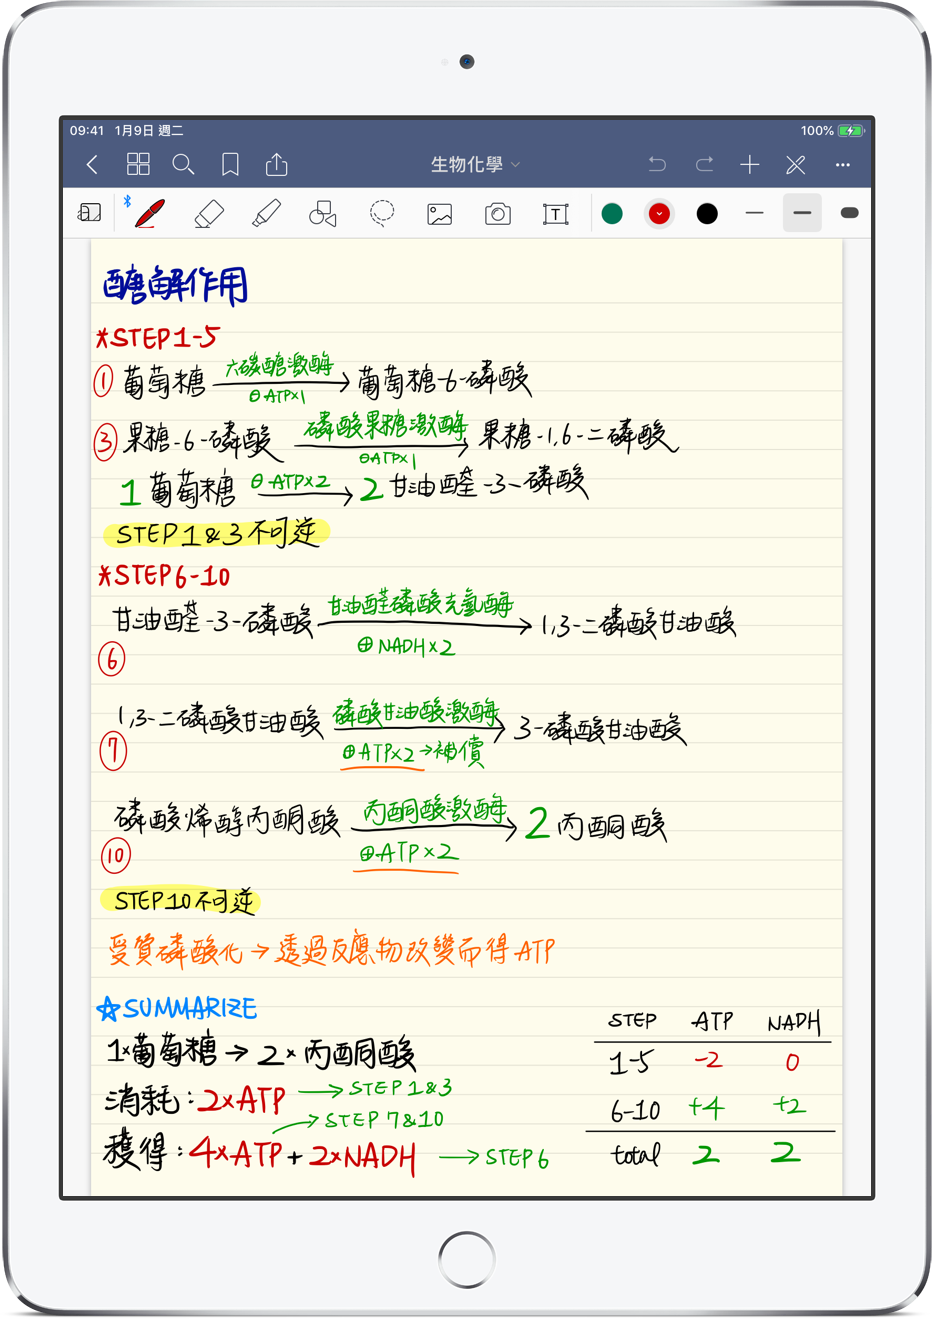 09:41 1月9日 週二 100%
生物化學
T
醣解作用
*STEP1-5
① 葡萄糖 六碳醣激酶 → 葡萄糖-6-磷酸
⊖ATP×1
③ 果糖-6-磷酸 磷酸果糖激酶 → 果糖-1,6-二磷酸
⊖ATP×1
1 葡萄糖 ⊖ATP×2 → 2 甘油醛-3-磷酸
STEP 1&3 不可逆
*STEP6-10
甘油醛-3-磷酸 甘油醛磷酸去氫酶 → 1,3-二磷酸甘油酸
⊕NADH×2
⑥
1,3-二磷酸甘油酸 磷酸甘油酸激酶 → 3-磷酸甘油酸
⑦ ⊕ATP×2→補償
磷酸烯醇丙酮酸 丙酮酸激酶 → 2 丙酮酸
⑩ ⊕ATP×2
STEP10不可逆
受質磷酸化→透過反應物改變而得ATP
☆SUMMARIZE
1×葡萄糖→2×丙酮酸
消耗:2×ATP →STEP 1&3
→STEP 7&10
獲得:4×ATP+2×NADH →STEP 6
STEP ATP NADH
1-5 -2 0
6-10 +4 +2
total 2 2